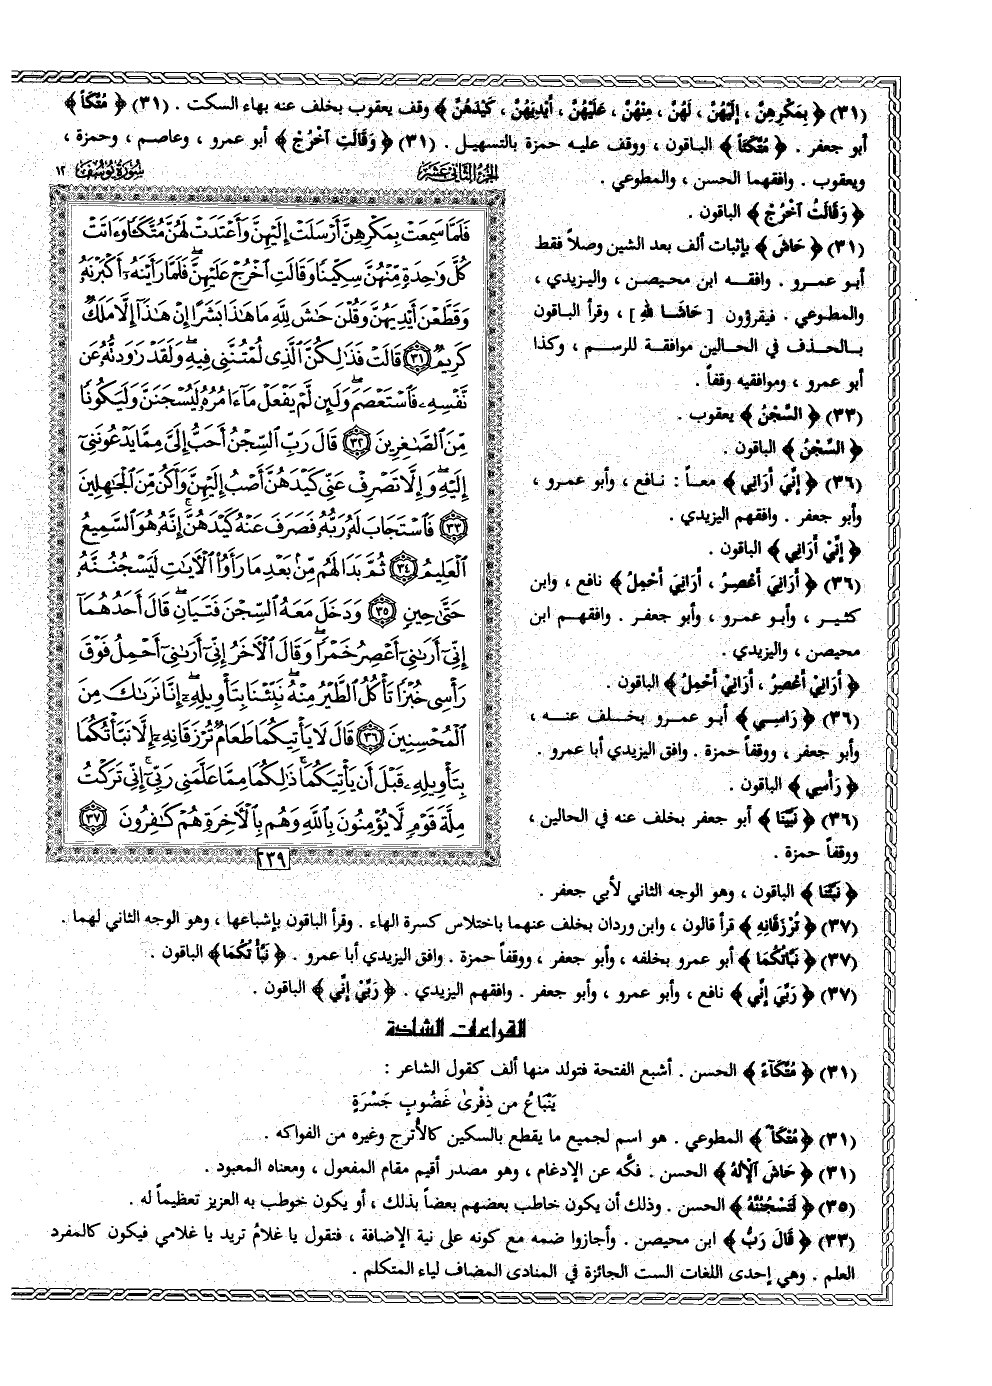 (٣١) ﴿ بِمَكْرِهِنَّ ، إِلَيْهِنَّ ، لَهُنَّ ، مِنْهُنَّ ، عَلَيْهُنَّ ، أَيْدِيَهُنَّ ، كَيْدَهُنَّ ﴾ وقف يعقوب بخلف عنه بهاء السكت . (٣١) ﴿ مُتَّكَاً ﴾
أبو جعفر . ﴿ مُتَّكَئاً ﴾ الباقون ، ووقف عليه حمزة بالتسهيل . (٣١) ﴿ وَقَالَتِ اخْرُجْ ﴾ أبو عمرو ، وعاصم ، وحمزة ،
ويعقوب . وافقهما الحسن ، والمطوعي .
﴿ وَقَالَتُ اخْرُجْ ﴾ الباقون .
(٣١) ﴿ حَاشَ ﴾ بإثبات ألف بعد الشين وصلاً فقط
أبو عمرو . وافقه ابن محيصن ، واليزيدي ،
والمطوعي . فيقرؤون [ حَاشَا لله ] ، وقرأ الباقون
بالحذف في الحالين موافقة للرسم ، وكذا
أبو عمرو ، وموافقيه وقفاً .
(٣٣) ﴿ السَّجْنُ ﴾ يعقوب .
﴿ السِّجْنُ ﴾ الباقون .
(٣٦) ﴿ إِنِّيَ أَرَانِي ﴾ معاً : نافع ، وأبو عمرو ،
وأبو جعفر . وافقهم اليزيدي .
﴿ إِنِّيْ أَرَانِي ﴾ الباقون .
(٣٦) ﴿ أَرَانِيَ أَعْصِرُ ، أَرَانِيَ أَحْمِلُ ﴾ نافع ، وابن
كثير ، وأبو عمرو ، وأبو جعفر . وافقهم ابن
محيصن ، واليزيدي .
﴿ أَرَانِيْ أَعْصِرُ ، أَرَانِيْ أَحْمِلُ ﴾ الباقون .
(٣٦) ﴿ رَاسِي ﴾ أبو عمرو بخلف عنه ،
وأبو جعفر ، ووقفاً حمزة . وافق اليزيدي أبا عمرو .
﴿ رَأْسِي ﴾ الباقون .
(٣٦) ﴿ نَبِّيْنَا ﴾ أبو جعفر بخلف عنه في الحالين ،
ووقفاً حمزة .
﴿ نَبِّئْنَا ﴾ الباقون ، وهو الوجه الثاني لأبي جعفر .
الجزء الثاني عشر
سورة يوسف ١٢
فَلَمَّا سَمِعَتْ بِمَكْرِهِنَّ أَرْسَلَتْ إِلَيْهِنَّ وَأَعْتَدَتْ لَهُنَّ مُتَّكَـًٔا وَءَاتَتْ
كُلَّ وَٰحِدَةٍ مِّنْهُنَّ سِكِّينًا وَقَالَتِ ٱخْرُجْ عَلَيْهِنَّ ۖ فَلَمَّا رَأَيْنَهُۥٓ أَكْبَرْنَهُۥ
وَقَطَّعْنَ أَيْدِيَهُنَّ وَقُلْنَ حَـٰشَ لِلَّهِ مَا هَـٰذَا بَشَرًا إِنْ هَـٰذَآ إِلَّا مَلَكٌ
كَرِيمٌ ﴿٣١﴾ قَالَتْ فَذَٰلِكُنَّ ٱلَّذِى لُمْتُنَّنِى فِيهِ ۖ وَلَقَدْ رَٰوَدتُّهُۥ عَن
نَّفْسِهِۦ فَٱسْتَعْصَمَ ۖ وَلَئِن لَّمْ يَفْعَلْ مَآ ءَامُرُهُۥ لَيُسْجَنَنَّ وَلَيَكُونًا
مِّنَ ٱلصَّـٰغِرِينَ ﴿٣٢﴾ قَالَ رَبِّ ٱلسِّجْنُ أَحَبُّ إِلَىَّ مِمَّا يَدْعُونَنِىٓ
إِلَيْهِ ۖ وَإِلَّا تَصْرِفْ عَنِّى كَيْدَهُنَّ أَصْبُ إِلَيْهِنَّ وَأَكُن مِّنَ ٱلْجَـٰهِلِينَ
﴿٣٣﴾ فَٱسْتَجَابَ لَهُۥ رَبُّهُۥ فَصَرَفَ عَنْهُ كَيْدَهُنَّ ۚ إِنَّهُۥ هُوَ ٱلسَّمِيعُ
ٱلْعَلِيمُ ﴿٣٤﴾ ثُمَّ بَدَا لَهُم مِّنۢ بَعْدِ مَا رَأَوُا۟ ٱلْـَٔايَـٰتِ لَيَسْجُنُنَّهُۥ
حَتَّىٰ حِينٍ ﴿٣٥﴾ وَدَخَلَ مَعَهُ ٱلسِّجْنَ فَتَيَانِ ۖ قَالَ أَحَدُهُمَآ
إِنِّىٓ أَرَىٰنِىٓ أَعْصِرُ خَمْرًا ۖ وَقَالَ ٱلْـَٔاخَرُ إِنِّىٓ أَرَىٰنِىٓ أَحْمِلُ فَوْقَ
رَأْسِى خُبْزًا تَأْكُلُ ٱلطَّيْرُ مِنْهُ ۖ نَبِّئْنَا بِتَأْوِيلِهِۦٓ ۖ إِنَّا نَرَىٰكَ مِنَ
ٱلْمُحْسِنِينَ ﴿٣٦﴾ قَالَ لَا يَأْتِيكُمَا طَعَامٌ تُرْزَقَانِهِۦٓ إِلَّا نَبَّأْتُكُمَا
بِتَأْوِيلِهِۦ قَبْلَ أَن يَأْتِيَكُمَا ۚ ذَٰلِكُمَا مِمَّا عَلَّمَنِى رَبِّىٓ ۚ إِنِّى تَرَكْتُ
مِلَّةَ قَوْمٍ لَّا يُؤْمِنُونَ بِٱللَّهِ وَهُم بِٱلْـَٔاخِرَةِ هُمْ كَـٰفِرُونَ ﴿٣٧﴾
٢٣٩
(٣٧) ﴿ تُرْزَقَانِهِ ﴾ قرأ قالون ، وابن وردان بخلف عنهما باختلاس كسرة الهاء . وقرأ الباقون بإشباعها ، وهو الوجه الثاني لهما .
(٣٧) ﴿ نَبَّاتُكُمَا ﴾ أبو عمرو بخلفه ، وأبو جعفر ، ووقفاً حمزة . وافق اليزيدي أبا عمرو . ﴿ نَبَّأْتُكُمَا ﴾ الباقون .
(٣٧) ﴿ رَبِّيَ إِنِّي ﴾ نافع ، وأبو عمرو ، وأبو جعفر . وافقهم اليزيدي . ﴿ رَبِّيْ إِنِّي ﴾ الباقون .
القراءات الشاذة
(٣١) ﴿ مُتَّكَآءً ﴾ الحسن . أشبع الفتحة فتولد منها ألف كقول الشاعر :
يَنْبَاعُ من ذِفْرىٰ غَضُوبٍ جَسْرَةٍ
(٣١) ﴿ مُتْكَأً ﴾ المطوعي . هو اسم لجميع ما يقطع بالسكين كالأترج وغيره من الفواكه .
(٣١) ﴿ حَاشَ الْإِلَهُ ﴾ الحسن . فكَّه عن الإدغام ، وهو مصدر أقيم مقام المفعول ، ومعناه المعبود .
(٣٥) ﴿ لَتَسْجُنُنَّهُ ﴾ الحسن . وذلك أن يكون خاطب بعضهم بعضاً بذلك ، أو يكون خوطب به العزيز تعظيماً له .
(٣٣) ﴿ قَالَ رَبُّ ﴾ ابن محيصن . وأجازوا ضمه مع كونه على نية الإضافة ، فتقول يا غلامُ تريد يا غلامي فيكون كالمفرد
العلم . وهي إحدى اللغات الست الجائزة في المنادى المضاف لياء المتكلم .